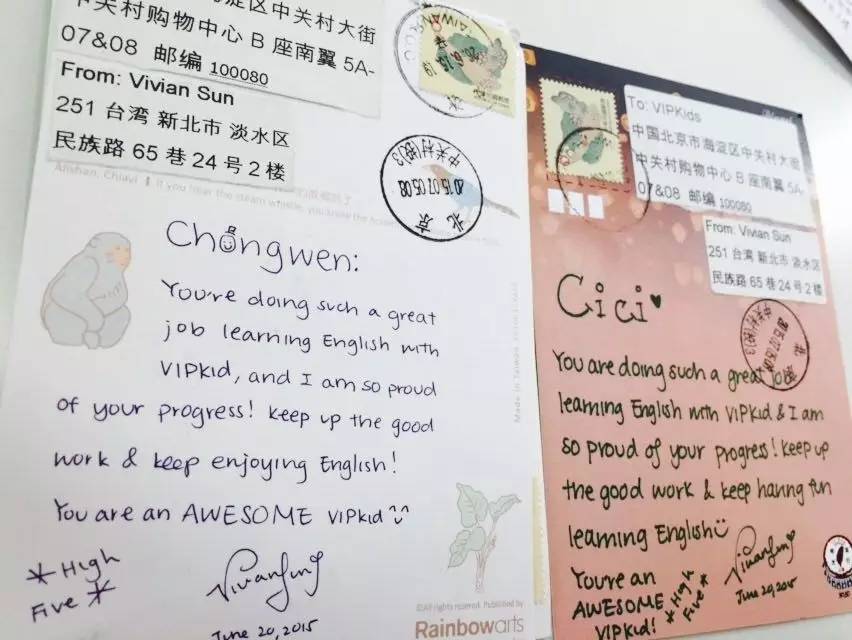 淀区中关村大街
中关村购物中心 B 座南翼 5A-
07&08 邮编 100080
From: Vivian Sun
251 台湾 新北市 淡水区
民族路 65 巷 24 号 2 楼
中关村(投)3
2015.07.05.08
北京
Chongwen:
You're doing such a great
job learning English with
VIPKid, and I am so proud
of your progress! Keep up the good
work & keep enjoying English!
You are an AWESOME VIPKid
*High
Five*
Vivian Sun
June 20, 2015
Made in Taiwan
©All rights reserved. Published by
Rainbowarts
To: VIPKids
中国北京市海淀区中关村大街
中关村购物中心 B 座南翼 5A-
07&08 邮编 100080
From: Vivian Sun
251 台湾 新北市 淡水区
民族路 65 巷 24 号 2 楼
Cici
You are doing such a great job
learning English with VIPKid & I am
so proud of your progress! Keep up
the good work & keep having fun
learning English
You're an
AWESOME
VIPKid!
*High
Five*
Vivian Sun
June 20, 2015